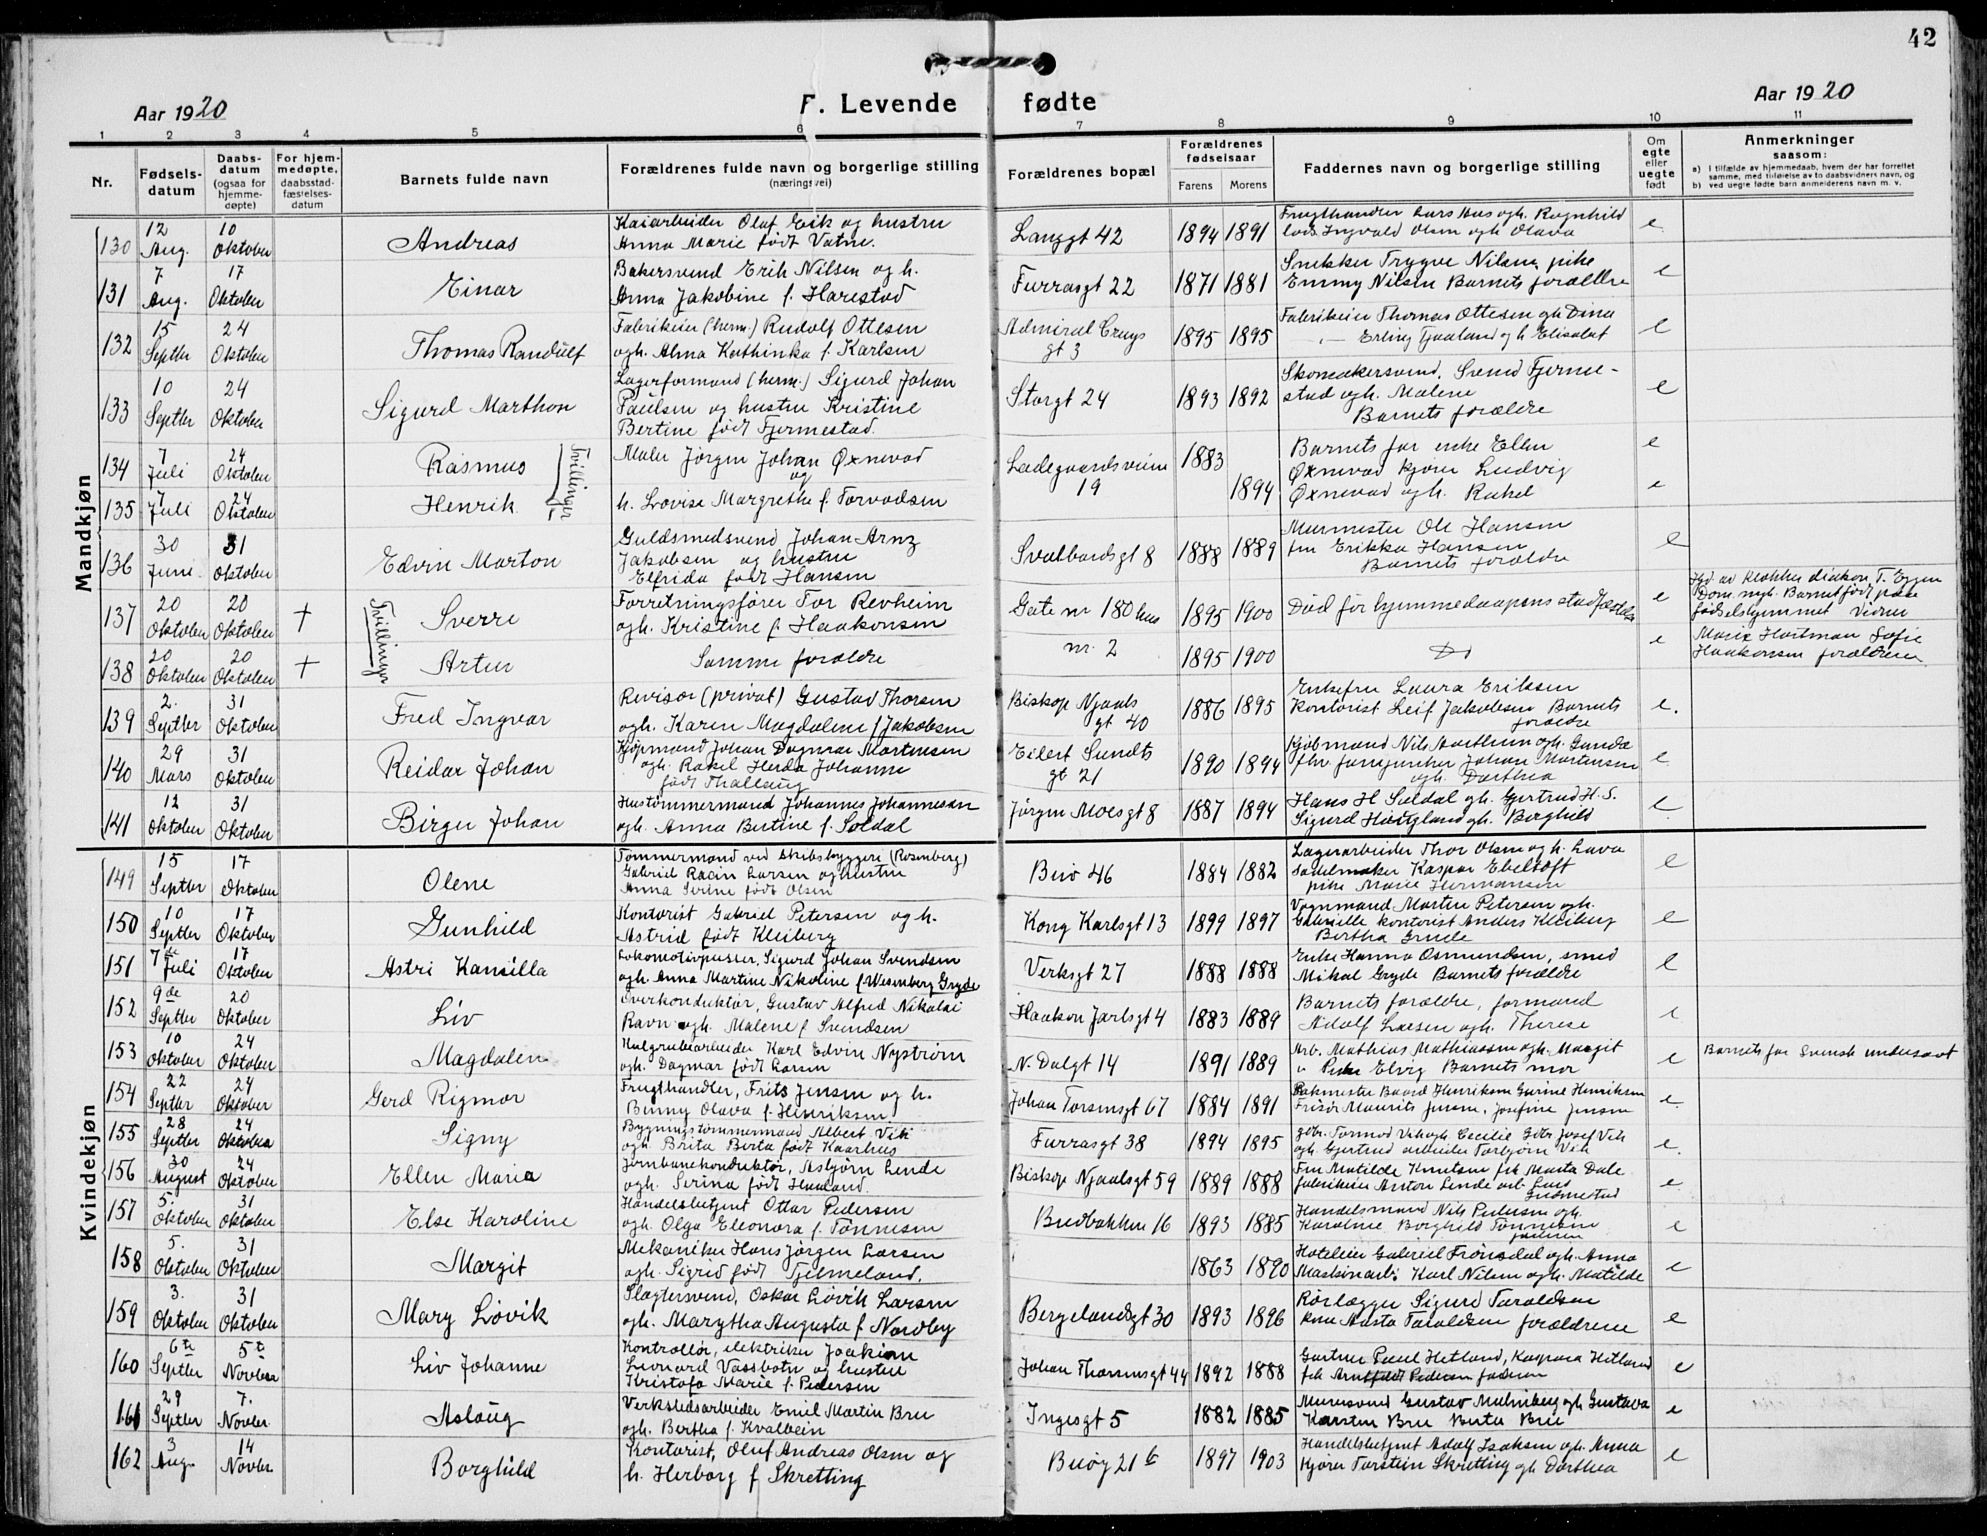 42
Aar 1920
F. Levende fødte
Aar 1920
1 2 3 4 5 6 7 8 9 10 11
Nr.
Fødsels-
datum
Daabs-
datum
(ogsaa for
hjemme-
døpte)
For hjem-
medøpte,
daabsstad-
fæstelses-
datum
Barnets fulde navn
Forældrenes fulde navn og borgerlige stilling
(næringsvei)
Forældrenes bopæl
Forældrenes
fødselsaar
Farens Morens
Faddernes navn og borgerlige stilling
Om
egte
eller
uegte
født
Anmerkninger
saasom:
a) I tilfælde av hjemmedaab, hvem der har forrettet
samme, med tilføielse av to daabsvidners navn, og
b) ved uegte fødte barn anmelderens navn m. v.
Mandkjøn
130 12 Aug. 10 Oktober Andreas
Kaiarbeider Olaf Erik og hustru
Anna Marie født Vatne.
Langgt 42 1894 1891
Frugthandler Lars Aas ogh. Ragnhild
Lods. Ingvald Olsen ogh Olava
e
131 7 Aug. 17 Oktober Einar
Bakersvend Erik Nilsen og h.
Anna Jakobine f. Harestad
Furrasgt 22 1871 1881
Snekker Trygve Nilsen, pike
Emmy Nilsen Barnets forældre
e
132 15 Septbr 24 Oktober Thomas Randulf
Fabrikeier (herm.) Rudolf Ottesen
ogh. Alma Kathinka f. Karlsen
Admiral Cruys
gt 3 1895 1895
Fabrikeier Thomas Ottesen ogh Dina
Erling Tjaaland og h Elisabet
e
133 10 Septbr 24 Oktober Sigurd Marthon
Lagerformand (herm.) Sigurd Johan
Paulsen og hustru Kristine
Bertine født Fjermestad.
Storgt 24 1893 1892
Skomakersvend, Svend Fjerme-
stad ogh. Malene
Barnets forældre
e
134 7 Juli 24 Oktober Rasmus
Tvillinger
Maler Jörgen Johan Øxnevad
og
Ladegaardsveien
19 1883
Barnets far enke Ellen
Øxnevad kjører Ludvig
e
135 7 Juli 24 Oktober Henrik
h. Lovise Margrethe f. Torvadsen
1894
Øxnevad ogh. Rakel
e
136 30 Juni 31 Oktober Edvin Marton
Guldsmedsvend Johan Arnz
Jakobsen og hustru
Elfrida født Hansen
Svalbardsgt 8 1888 1889
Murmester Ole Hansen
fru Erikka Hansen
Barnets forældre
e
137 20 Oktober 20 Oktober † Sverre
Tvillinger
Forretningsfører Tor Revheim
ogh. Kristine f. Haakonsen
Gate nr 180 hus 1895 1900
Død før hjemmedaapens stadfæstelse
e
Hjd. av Klokker diakon T. Eggen
Dom. mgh. Barnet født paa
fødselshjemmet Vidner
138 20 Oktober 20 Oktober † Artur
Samme forældre
nr. 2 1895 1900
Do
e
Marie Hartman Sofie
Haakonsen forældrene
139 2. Septbr 31 Oktober Fred Ingvar
Revisor (privat) Gustav Thorsen
ogh. Karen Magdalene f Jakobsen
Biskop Njaals
gt 40 1886 1895
Enkefru Laura Eriksen
Kontorist Leif Jakobsen Barnets
forældre
e.
140 29 Mars 31 Oktober Reidar Johan
Kjøpmand Johan Dagmar Mortensen
ogh. Rakel Herda Johanne
født Thallaug
Eilert Sundts
gt 21 1890 1894
Kjøbmand Nils Aartun ogh. Gunda
Johan Mortensen
ogh. Dorthea
e
141 12 Oktober 31 Oktober Birger Johan
Hustømmermand Johannes Johannesen
ogh. Anna Bertine f. Soldal
Jørgen Moesgt 8 1887 1894
Hans H Soldal ogh. Gjertrud H. S.
Sigurd Høiegland ogh. Borghild
e
Kvindekjøn
149 15 Septbr 17 Oktober Olene
Tømmermand ved skibsbyggeri (Rosenberg)
Gabriel Racin Larsen og hustru
Anna Serine født Olsen
Buø 46 1884 1882
Lagerarbeider Thor Olsen og h. Lava
Sadelmaker Kaspar Ebeltoft
pike Marie Hermansen
e
150 10 Septbr 17 Oktober Gunhild
Kontorist Gabriel Petersen og h.
Astrid født Kleiberg
Kong Karlsgt 13 1899 1897
Vognmand Martin Petersen ogh.
Gabrielle kontorist Anders Kleiberg
Bertha Grude
e
151 7de Juli 17 Oktober Astri Kamilla
Lokomotivpusser, Sigurd Johan Svendsen
ogh. Anna Martine Nikoline f Wesenberg Gryde
Verksgt 27 1888 1888
Enke Hanna Osmundsen, smed
Mikal Gryde Barnets forældre
e
152 9de Septbr 20 Oktober Liv
Overkonduktør, Gustav Alfred Nikolai
Ravn ogh. Malene f Svendsen
Haakon Jarlsgt 4 1883 1889
Barnets forældre, formand
Adolf Larsen ogh. Therese
e
153 10 Oktober 24 Oktober Magdalen
Hulgrubearbeider Karl Edvin Nystrøm
ogh. Dagmar født Larsen
N. Dalgt 14 1891 1889
Arb. Mathias Mathiassen ogh. Margit
Pike Elvig Barnets mor
e
Barnets far Svensk undersaat
154 22 Septbr 24 Oktober Gerd Rigmor
Frugthandler, Frits Jensen og h.
Binny Olava f. Hinriksen
Johan Torsensgt 67 1884 1891
Bakmester Baard Henriksen Gurine Henriksen
Frisør Maurits Jensen, Josefine Jensen
e.
155 28 Septbr 24 Oktober Signy
Bygningstømmermand Albert Vik
ogh. Brita Berta født Kaarhus
Furrasgt 38 1894 1895
Gbr. Tormod Vik ogh. Cecilie Gbr Josef Vik
ogh Gjertrud arbeider Torbjørn Vik
e.
156 30 August 24 Oktober Ellen Maria
Jernbanekonduktør, Asbjørn Lende
ogh. Serina født Haaland.
Biskop Njaalsgt 59 1889 1888
Fru Matilde Knutsen frk Marta Dale
fabrikeier Anton Lende arb. Lars
e
157 5. Oktober 31 Oktober Else Karoline
Handelsbetjent Ottar Pedersen
ogh. Olga Eleonora f. Tønnesen
Bredbakken 16 1893 1885
Handelsmand Nils Pedersen ogh.
Karoline Borghild Tønnesen
faderen
e
158 5. Oktober 31 Oktober Margit
Mekaniker Hans Jörgen Larsen
ogh. Sigrid født Tjelmeland.
1863 1890
Hoteleier Gabriel Frönsdal ogh. Anna
Maskinarb. Karl Nilsen ogh. Matilde
e
159 3. Oktober 31 Oktober Mary Løvik
Slagtersvend, Oskar Løvik Larsen
ogh. Marytha Augusta f Nordby
Bergelandsgt 30 1893 1896
Rørlægger Sigurd Taraldsen
Fru Aasta Taraldsen forældrene
e
160 6te Septbr 5t Novbr Liv Johanne
Kontrollør, elektriker Joakim
Leonard Vassbotn og hustru
Kristofa Marie f. Pedersen
Johan Thorsensgt 44 1892 1888
Gartner Paul Hetland, Kaspara Hetland
frk Arnfeldt Pedersen faderen
e
161 29 Septbr 7. Novbr. Aslaug
Verkstedsarbeider Emil Martin Bru
ogh. Bertha f. Kvalbein
Ingesgt 5 1882 1885
Murersvend Gustav Malmberg ogh Gustava
Karsten Bru Berta Bru
e
162 3 Aug. 14 Novbr. Borghild
Kontorist, Oluf Andreas Olsen og
h. Herborg f Skretting
Buøy 21b 1897 1903
Handelsbetjent Adolf Isaksen ogh. Anna
Kjører Torstein Skretting ogh Dorthea
e